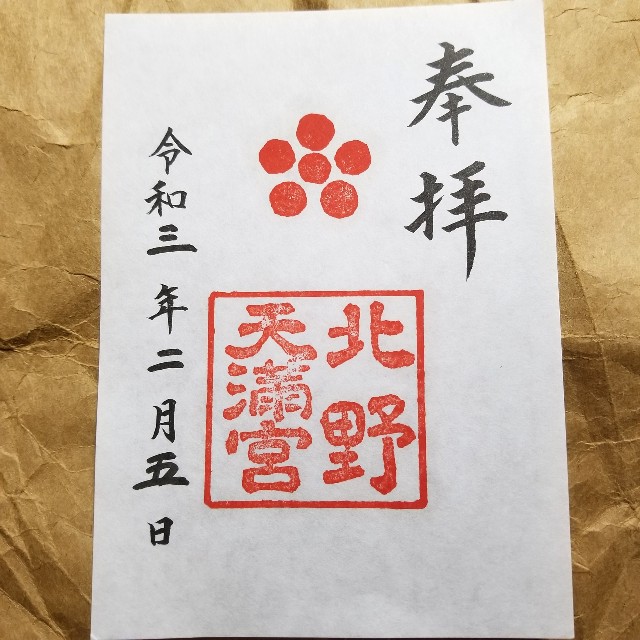 奉拝
北野
天満宮
令和三年二月五日